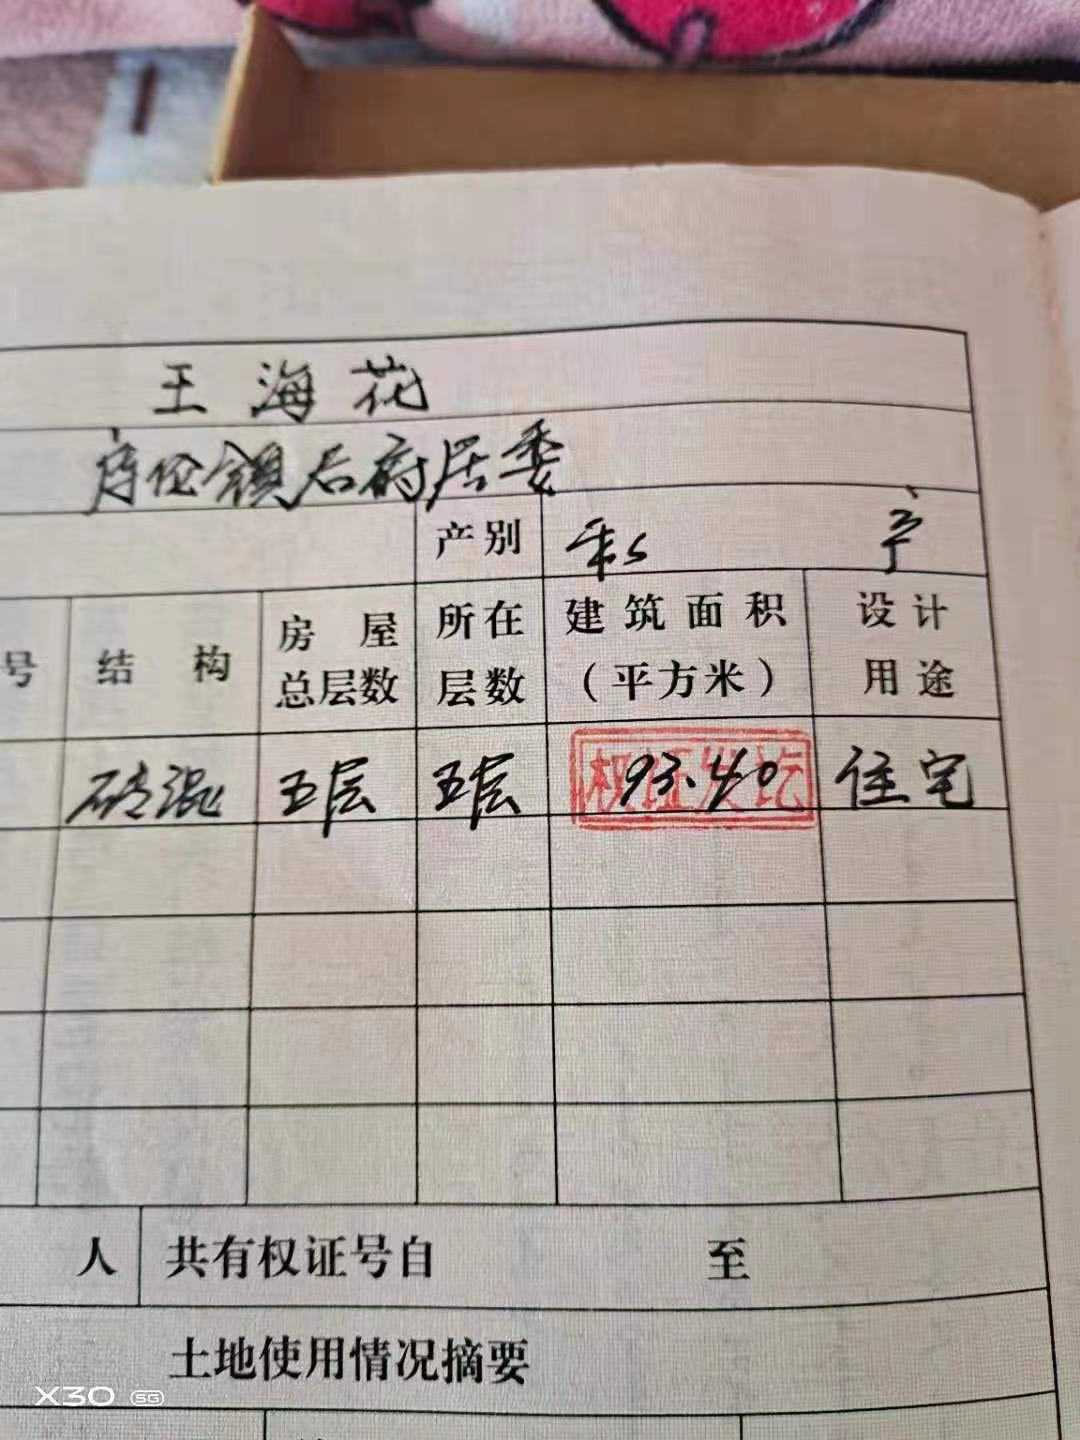 王海花
库伦镇后府居委
产别 私 产
号 结 构 房 屋 总层数 所在 层数 建筑面积 (平方米) 设计 用途
砖混 五层 五层 93.40 住宅
人 共有权证号自 至
土地使用情况摘要
X30 5G